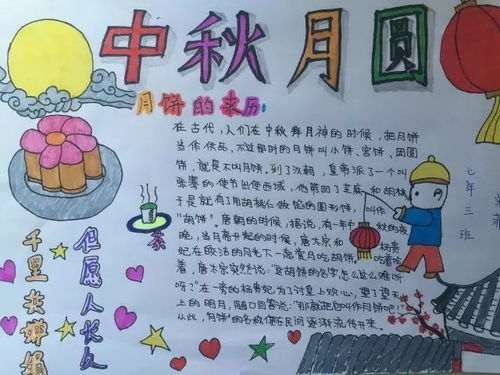 中秋月圆
月饼的来历:
在古代,人们在中秋拜月神的时候,把月饼
当作供品,不过那时的月饼叫小饼、宫饼、团圆
饼,就是不叫月饼。到了汉朝,皇帝派了一个叫
张骞的使节出使西域,他带回了芝麻和胡桃
于是就有了用胡桃仁做馅的圆形饼,叫作
“胡饼”。唐朝的时候,据说,有一年中秋的夜
晚,当月亮升起的时候,唐太宗和杨贵
妃在皎洁的月光下一起赏月吃胡饼。吃着吃
着,唐太宗突然说:“这胡饼的名字怎么这么难听
呀?”在一旁的杨贵妃为了讨皇上欢心,望了望天
上的明月,随口回答说:“那就把它叫作月饼吧!”
从此,“月饼”的名称便在民间逐渐流传开来。
茶
但愿人长久
千里共婵娟
七年三班